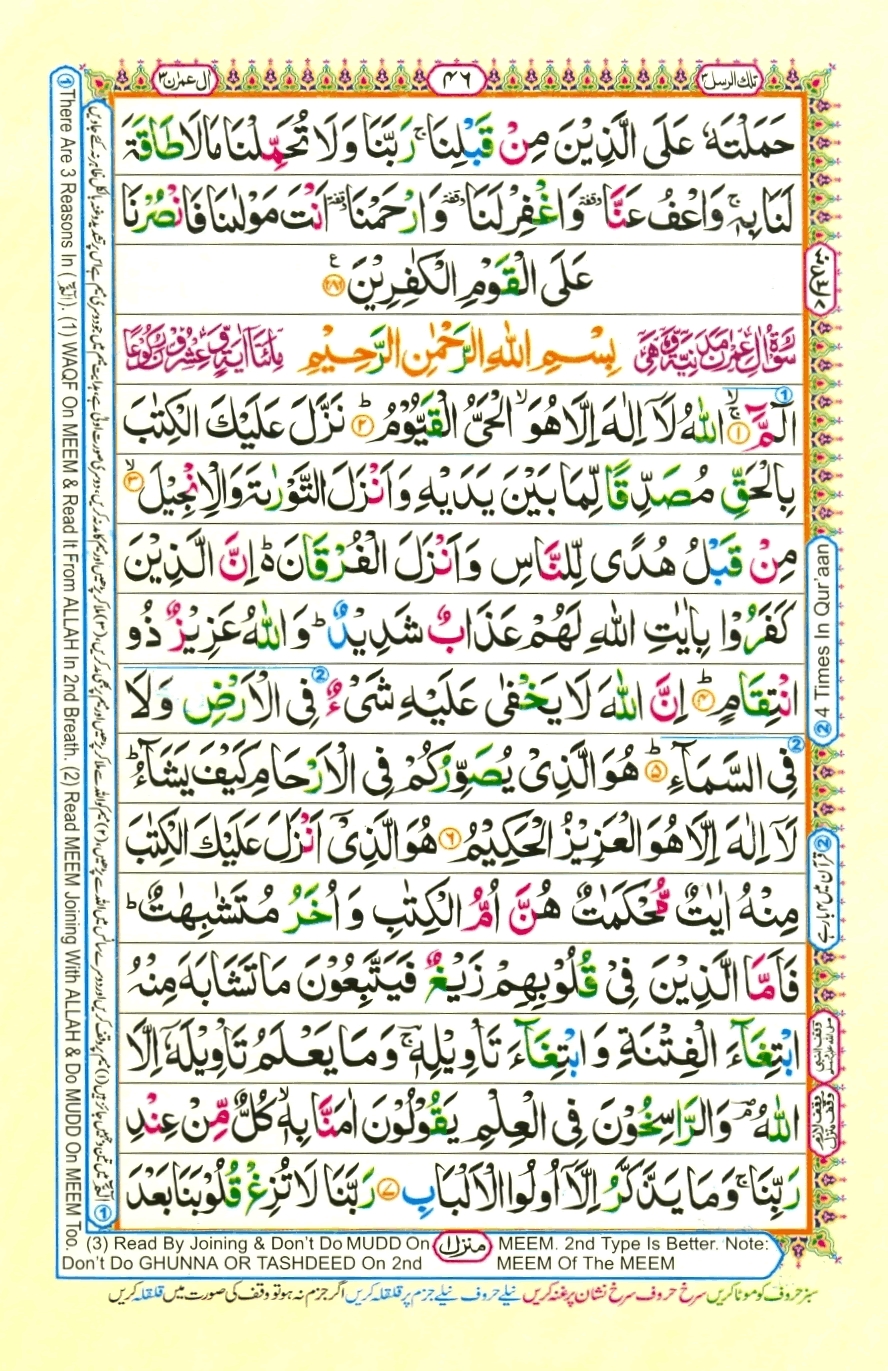 تلك الرسل ٣
٤٦
اٰل عمرٰن ٣
حَمَلْتَهٗ عَلَى الَّذِيْنَ مِنْ قَبْلِنَا ۚ رَبَّنَا وَلَا تُحَمِّلْنَا مَا لَا طَاقَةَ
لَنَا بِهٖ ۚ وَاعْفُ عَنَّا ۥ وقفة وَاغْفِرْ لَنَا ۥ وقفة وَارْحَمْنَا ۥ وقفة اَنْتَ مَوْلٰىنَا فَانْصُرْنَا
عَلَى الْقَوْمِ الْكٰفِرِيْنَ ﴿۲۸۶﴾
سُوْرَةُ اٰلِ عِمْرٰنَ مَدَنِيَّةٌ وَّهِىَ بِسْمِ اللّٰهِ الرَّحْمٰنِ الرَّحِيْمِ مِائَتَا اٰيَةٍ وَّعِشْرُوْنَ رُكُوْعًا
الٓمّٓ ۙ﴿۱﴾ اللّٰهُ لَاۤ اِلٰهَ اِلَّا هُوَ ۙ الْحَىُّ الْقَيُّوْمُ ؕ﴿۲﴾ نَزَّلَ عَلَيْكَ الْكِتٰبَ
بِالْحَقِّ مُصَدِّقًا لِّمَا بَيْنَ يَدَيْهِ وَاَنْزَلَ التَّوْرٰىةَ وَالْاِنْجِيْلَ ۙ﴿۳﴾
مِنْ قَبْلُ هُدًى لِّلنَّاسِ وَاَنْزَلَ الْفُرْقَانَ ؕ اِنَّ الَّذِيْنَ
كَفَرُوْا بِاٰيٰتِ اللّٰهِ لَهُمْ عَذَابٌ شَدِيْدٌ ؕ وَاللّٰهُ عَزِيْزٌ ذُو
انْتِقَامٍ ؕ﴿۴﴾ اِنَّ اللّٰهَ لَا يَخْفٰى عَلَيْهِ شَىْءٌ فِى الْاَرْضِ وَلَا
فِى السَّمَآءِ ؕ﴿۵﴾ هُوَ الَّذِىْ يُصَوِّرُكُمْ فِى الْاَرْحَامِ كَيْفَ يَشَآءُ ؕ
لَاۤ اِلٰهَ اِلَّا هُوَ الْعَزِيْزُ الْحَكِيْمُ ﴿۶﴾ هُوَ الَّذِىْۤ اَنْزَلَ عَلَيْكَ الْكِتٰبَ
مِنْهُ اٰيٰتٌ مُّحْكَمٰتٌ هُنَّ اُمُّ الْكِتٰبِ وَاُخَرُ مُتَشٰبِهٰتٌ ؕ
فَاَمَّا الَّذِيْنَ فِىْ قُلُوْبِهِمْ زَيْغٌ فَيَتَّبِعُوْنَ مَا تَشَابَهَ مِنْهُ
ابْتِغَآءَ الْفِتْنَةِ وَابْتِغَآءَ تَاْوِيْلِهٖ ۚ وَمَا يَعْلَمُ تَاْوِيْلَهٗۤ اِلَّا
اللّٰهُ ۘ وَالرَّاسِخُوْنَ فِى الْعِلْمِ يَقُوْلُوْنَ اٰمَنَّا بِهٖ ۙ كُلٌّ مِّنْ عِنْدِ
رَبِّنَا ۚ وَمَا يَذَّكَّرُ اِلَّاۤ اُولُوا الْاَلْبَابِ ﴿۷﴾ رَبَّنَا لَا تُزِغْ قُلُوْبَنَا بَعْدَ
② 4 Times In Qur'aan
② قرآن میں ۴ بار ہے
وقف لازم
وقف منزل
① There Are 3 Reasons In (الٓمّٓ). (1) WAQF On MEEM & Read It From ALLAH In 2nd Breath. (2) Read MEEM Joining With ALLAH & Do MUDD On MEEM Too.
(3) Read By Joining & Don't Do MUDD On MEEM. 2nd Type Is Better. Note:
Don't Do GHUNNA OR TASHDEED On 2nd MEEM Of The MEEM
منزل ۱
سبز حروف کو موٹا کریں سرخ حروف سرخ نشان پر غنہ کریں نیلے حروف نیلے جزم پر قلقلہ کریں اگر جزم نہ ہو تو وقف کی صورت میں قلقلہ کریں